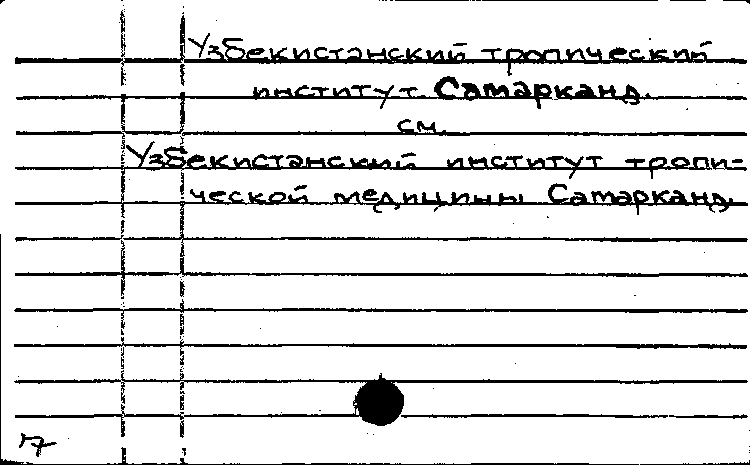 Узбекистанский тропический
институт. Самарканд.
см.
Узбекистанский институт тропи-
ческой медицины Самарканд.